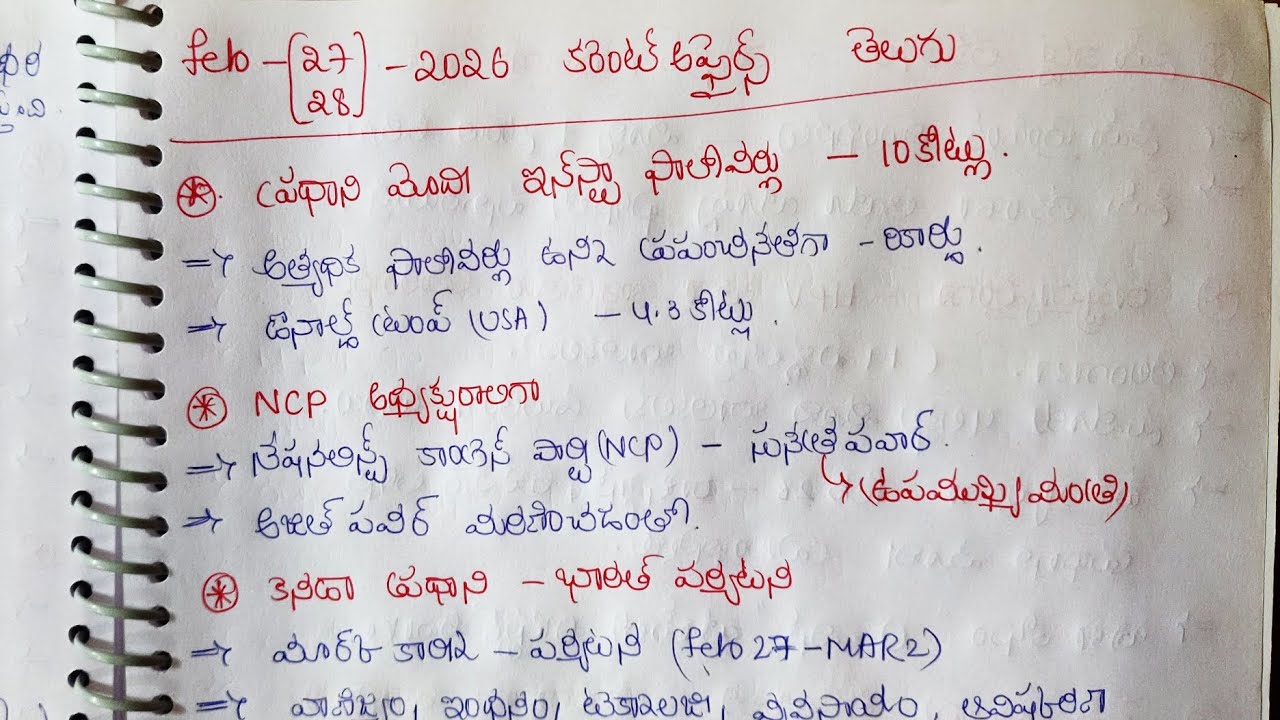 feb - [27 28] - 2026 కరెంట్ అఫైర్స్ తెలుగు
ప్రధాని మోదీ ఇన్‌స్టా ఫాలోవర్లు – 10 కోట్లు.
⇒ అత్యధిక ఫాలోవర్లు ఉన్న ప్రపంచనేతగా - రికార్డు.
⇒ డొనాల్డ్ ట్రంప్ (USA) – 4.3 కోట్లు.
NCP అధ్యక్షురాలిగా
⇒ నేషనలిస్ట్ కాంగ్రెస్ పార్టీ (NCP) – సునేత్ర పవార్.
↳ (ఉపముఖ్యమంత్రి)
⇒ అజిత్ పవర్ మరణించడంతో.
కెనడా ప్రధాని – భారత్ పర్యటన
⇒ మార్క్ కార్ని – పర్యటన (feb 27 – MAR 2)
⇒ వాణిజ్యం, ఇంధనం, టెక్నాలజీ, వ్యవసాయం, ఆవిష్కరణ